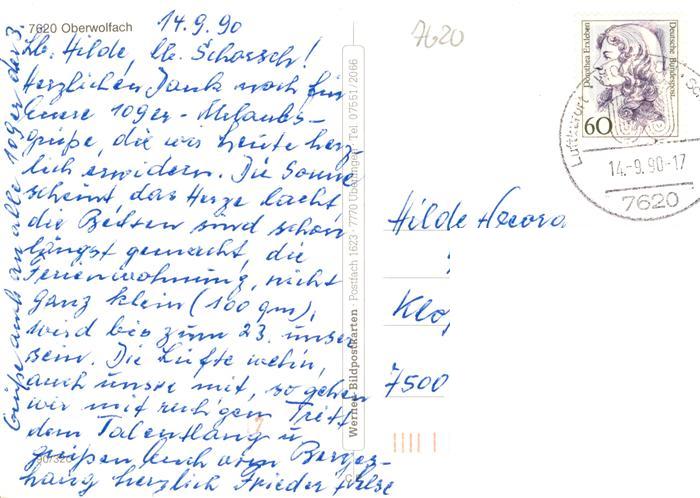 7620 Oberwolfach
14.9.90
Lb. Hilde, lb. Schorsch!
Herzlichen Dank noch für
Euere 10ger-Urlaubs-
grüße, die wir heute herz-
lich erwidern. Die Sonne
scheint das Herze lacht,
die Betten sind schon
längst gemacht, die
Ferienwohnung, nicht
ganz klein (100 qm),
wird bis zum 23. unser
sein. Die Lüfte wehn,
auch unsre mit, so gehen
wir mit ruhigem Tritt
dem Talentlang u
grüßen Euch vom Berger-
hang herzlich Frieder
Grüße auch an alle 10ger der 3.
90/320
Werner-Bildpostkarten · Postfach 1623 · 7770 Überlingen · Tel. 07551/2066
7620
Dorothea Erxleben
Deutsche Bundespost
60
Luftkurort
14.-9.90-17
7620
Hilde
Klo
7500